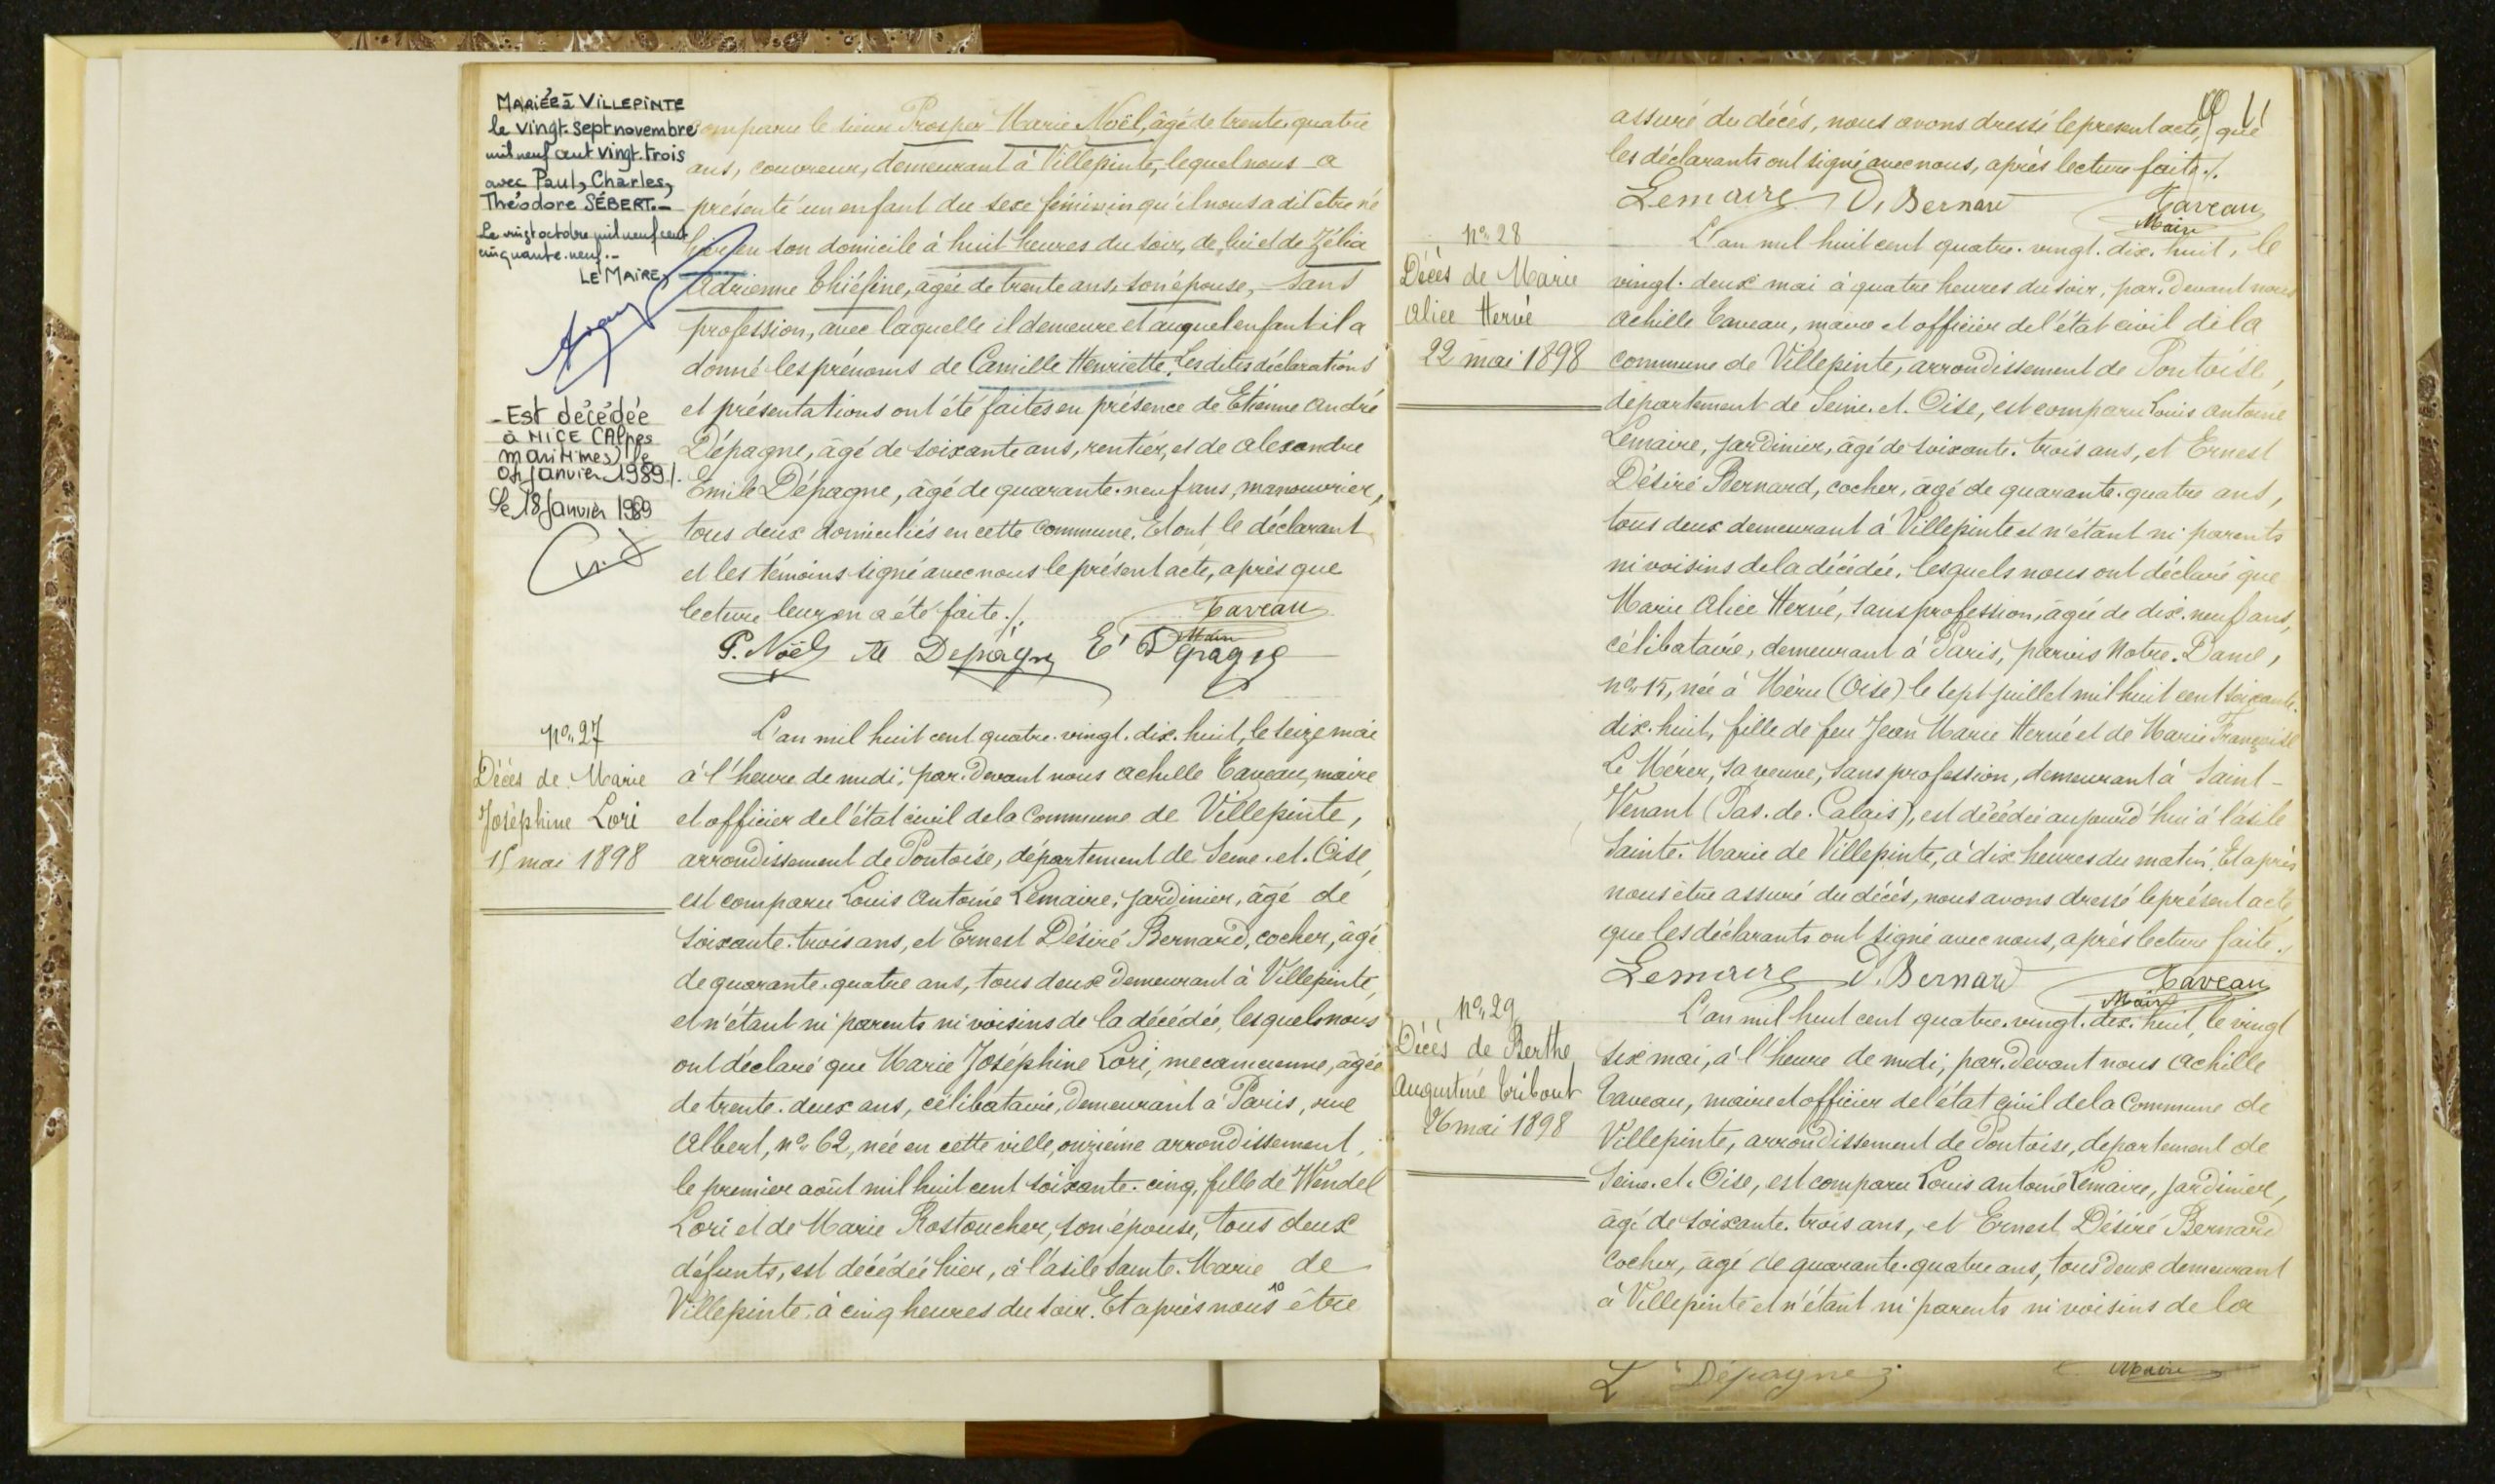 MARIÉE à VILLEPINTE
le vingt-sept novembre
mil neuf cent vingt-trois
avec Paul, Charles,
Théodore SÉBERT.-
Le vingt octobre mil neuf cent
cinquante-neuf.-
LE MAIRE,
- Est décédée
à NICE (Alpes
maritimes) le
janvier 1989./.
Le 18 Janvier 1989
comparu le sieur Prosper Marie Noël, âgé de trente-quatre
ans, couvreur, demeurant à Villepinte, lequel nous a
présenté un enfant du sexe féminin qu'il nous a dit être né
hier en son domicile à huit heures du soir, de lui et de Zélia
Adrienne Thiéfine, âgée de trente ans, son épouse, - sans
profession, avec laquelle il demeure et auquel enfant il a
donné les prénoms de Camille Henriette. Les dites déclarations
et présentations ont été faites en présence de Etienne André
Dépagne, âgé de soixante ans, rentier, et de Alexandre
Emile Dépagne, âgé de quarante-neuf ans, manouvrier,
tous deux domiciliés en cette commune. Et ont le déclarant
et les témoins signé avec nous le présent acte, après que
lecture leur en a été faite./.
Taveau
Maire
P. Noël Ae Depagne Et Depagne
No 27
Décès de Marie
Joséphine Lori
15 mai 1898
L'an mil huit cent quatre-vingt-dix-huit, le seize mai
à l'heure de midi, par-devant nous Achille Taveau, maire
et officier de l'état civil de la Commune de Villepinte,
arrondissement de Pontoise, département de Seine-et-Oise,
est comparu Louis Antoine Lemaire, jardinier, âgé de
soixante-trois ans, et Ernest Désiré Bernard, cocher, âgé
de quarante-quatre ans, tous deux demeurant à Villepinte,
et n'étant ni parents ni voisins de la décédée, lesquels nous
ont déclaré que Marie Joséphine Lori, mecanicienne, âgée
de trente-deux ans, célibataire, demeurant à Paris, rue
Albert, no 62, née en cette ville, onzième arrondissement,
le premier août mil huit cent soixante-cinq, fille de Wendel
Lori et de Marie Rostoucher, son épouse, tous deux
défunts, est décédée hier, à l'asile Sainte-Marie de
Villepinte, à cinq heures du soir. Et après nous être
10
assuré du décès, nous avons dressé le present acte, que
les déclarants ont signé avec nous, après lecture faite./.
Lemaire D. Bernard Taveau
Maire
No 28
Décès de Marie
Alice Hervé
22 mai 1898
L'an mil huit cent quatre-vingt-dix-huit, le
vingt-deux mai à quatre heures du soir, par-devant nous
Achille Taveau, maire et officier de l'état civil de la
commune de Villepinte, arrondissement de Pontoise,
département de Seine-et-Oise, est comparu Louis Antoine
Lemaire, jardinier, âgé de soixante-trois ans, et Ernest
Désiré Bernard, cocher, âgé de quarante-quatre ans,
tous deux demeurant à Villepinte et n'étant ni parents
ni voisins de la décédée, lesquels nous ont déclaré que
Marie Alice Hervé, sans profession, âgée de dix-neuf ans,
célibataire, demeurant à Paris, parvis Notre-Dame,
no 15, née à Méru (Oise) le sept juillet mil huit cent soixante-
dix-huit, fille de feu Jean Marie Hervé et de Marie Françoise
Le Mérer, sa veuve, sans profession, demeurant à Saint-
Venant (Pas-de-Calais), est décédée aujourd'hui à l'asile
Sainte-Marie de Villepinte, à dix heures du matin. Et après
nous être assuré du décès, nous avons dressé le présent acte
que les déclarants ont signé avec nous, après lecture faite./.
Lemaire D. Bernard Taveau
Maire
No 29
Décès de Berthe
Augustine Tribout
26 mai 1898
L'an mil huit cent quatre-vingt-dix-huit, le vingt
six mai, à l'heure de midi, par-devant nous Achille
Taveau, maire et officier de l'état civil de la Commune de
Villepinte, arrondissement de Pontoise, departement de
Seine-et-Oise, est comparu Louis Antoine Lemaire, jardinier,
âgé de soixante-trois ans, et Ernest Désiré Bernard
cocher, âgé de quarante-quatre ans, tous deux demeurant
à Villepinte et n'étant ni parents ni voisins de la
Dépagne
Maire